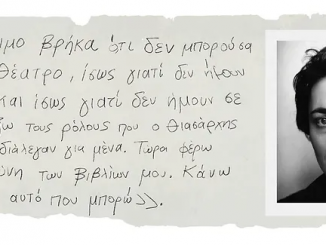 μο βρήκα ότι δεν μπορούσα
θέατρο, ίσως γιατί δεν ήμουν
και ίσως γιατί δεν ήμουν σε
ζω τους ρόλους που ο θιασάρχης
διάλεγαν για μένα. Τώρα φέρω
ύνη των βιβλίων μου. Κάνω
αυτό που μπορώ>>.